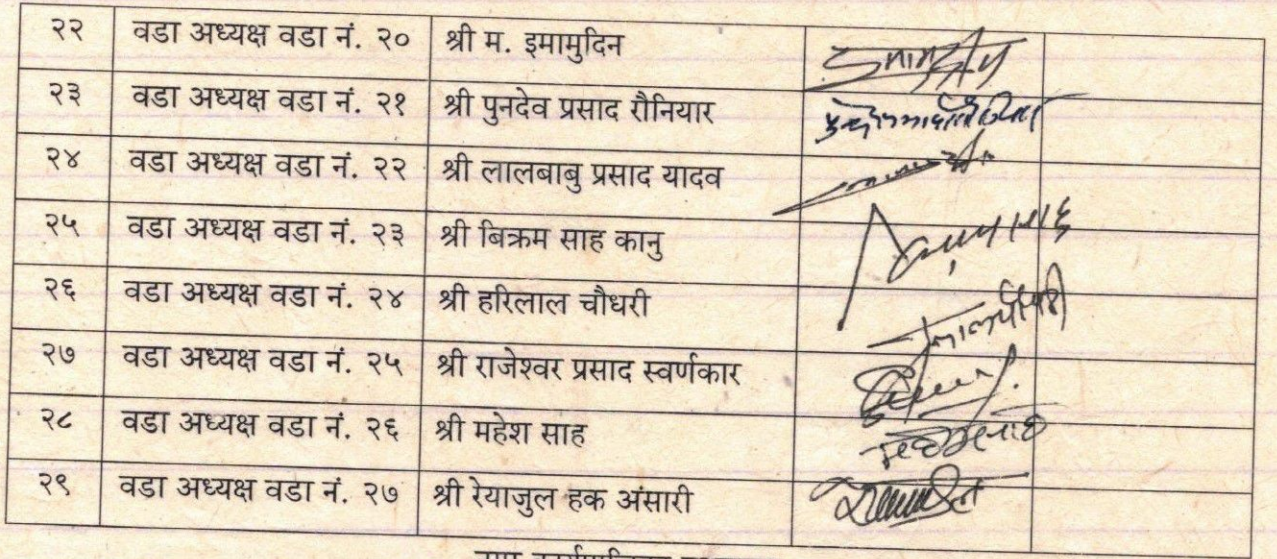 २२ वडा अध्यक्ष वडा नं. २० श्री म. इमामुदिन
२३ वडा अध्यक्ष वडा नं. २१ श्री पुनदेव प्रसाद रौनियार
२४ वडा अध्यक्ष वडा नं. २२ श्री लालबाबु प्रसाद यादव
२५ वडा अध्यक्ष वडा नं. २३ श्री बिक्रम साह कानु
२६ वडा अध्यक्ष वडा नं. २४ श्री हरिलाल चौधरी
२७ वडा अध्यक्ष वडा नं. २५ श्री राजेश्वर प्रसाद स्वर्णकार
२८ वडा अध्यक्ष वडा नं. २६ श्री महेश साह
२९ वडा अध्यक्ष वडा नं. २७ श्री रेयाजुल हक अंसारी